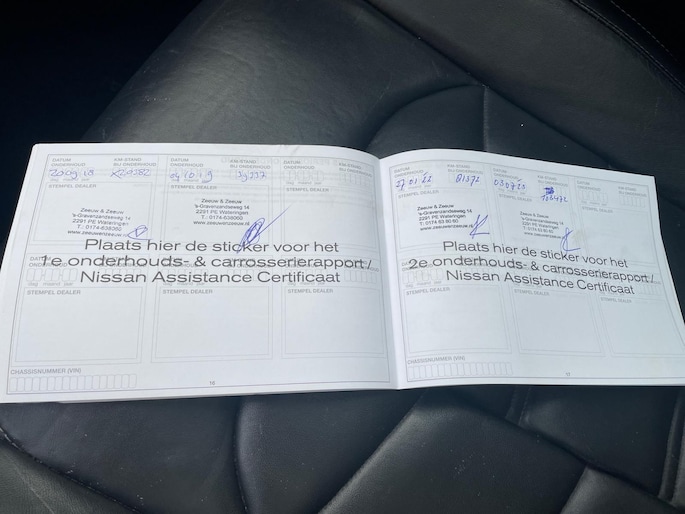 DATUM ONDERHOUD
KM-STAND BIJ ONDERHOUD
DATUM ONDERHOUD
KM-STAND BIJ ONDERHOUD
DATUM ONDERHOUD
KM-STAND BIJ ONDERHOUD
dag maand jaar
STEMPEL DEALER
STEMPEL DEALER
STEMPEL DEALER
Zeeuw & Zeeuw
's-Gravenzandseweg 14
2291 PE Wateringen
T.: 0174-638060
www.zeeuwenzeeuw.nl
Zeeuw & Zeeuw
's-Gravenzandseweg 14
2291 PE Wateringen
T.: 0174-638060
Plaats hier de sticker voor het
1e onderhouds- & carrosserierapport /
Nissan Assistance Certificaat
STEMPEL DEALER
STEMPEL DEALER
STEMPEL DEALER
CHASSISNUMMER (VIN)
16
DATUM ONDERHOUD
KM-STAND BIJ ONDERHOUD
DATUM ONDERHOUD
KM-STAND BIJ ONDERHOUD
DATUM ONDERHOUD
KM-STAND BIJ ONDERHOUD
27 01 22
030723
STEMPEL DEALER
STEMPEL DEALER
STEMPEL DEALER
Zeeuw & Zeeuw
's-Gravenzandseweg 14
2291 PE Wateringen
T.: 0174 63 80 60
www.zeeuwenzeeuw.nl
Zeeuw & Zeeuw
's-Gravenzandseweg 14
2291 PE Wateringen
T.: 0174 63 80 60
www.zeeuwenzeeuw.nl
Plaats hier de sticker voor het
2e onderhouds- & carrosserierapport /
Nissan Assistance Certificaat
STEMPEL DEALER
STEMPEL DEALER
STEMPEL DEALER
CHASSISNUMMER (VIN)